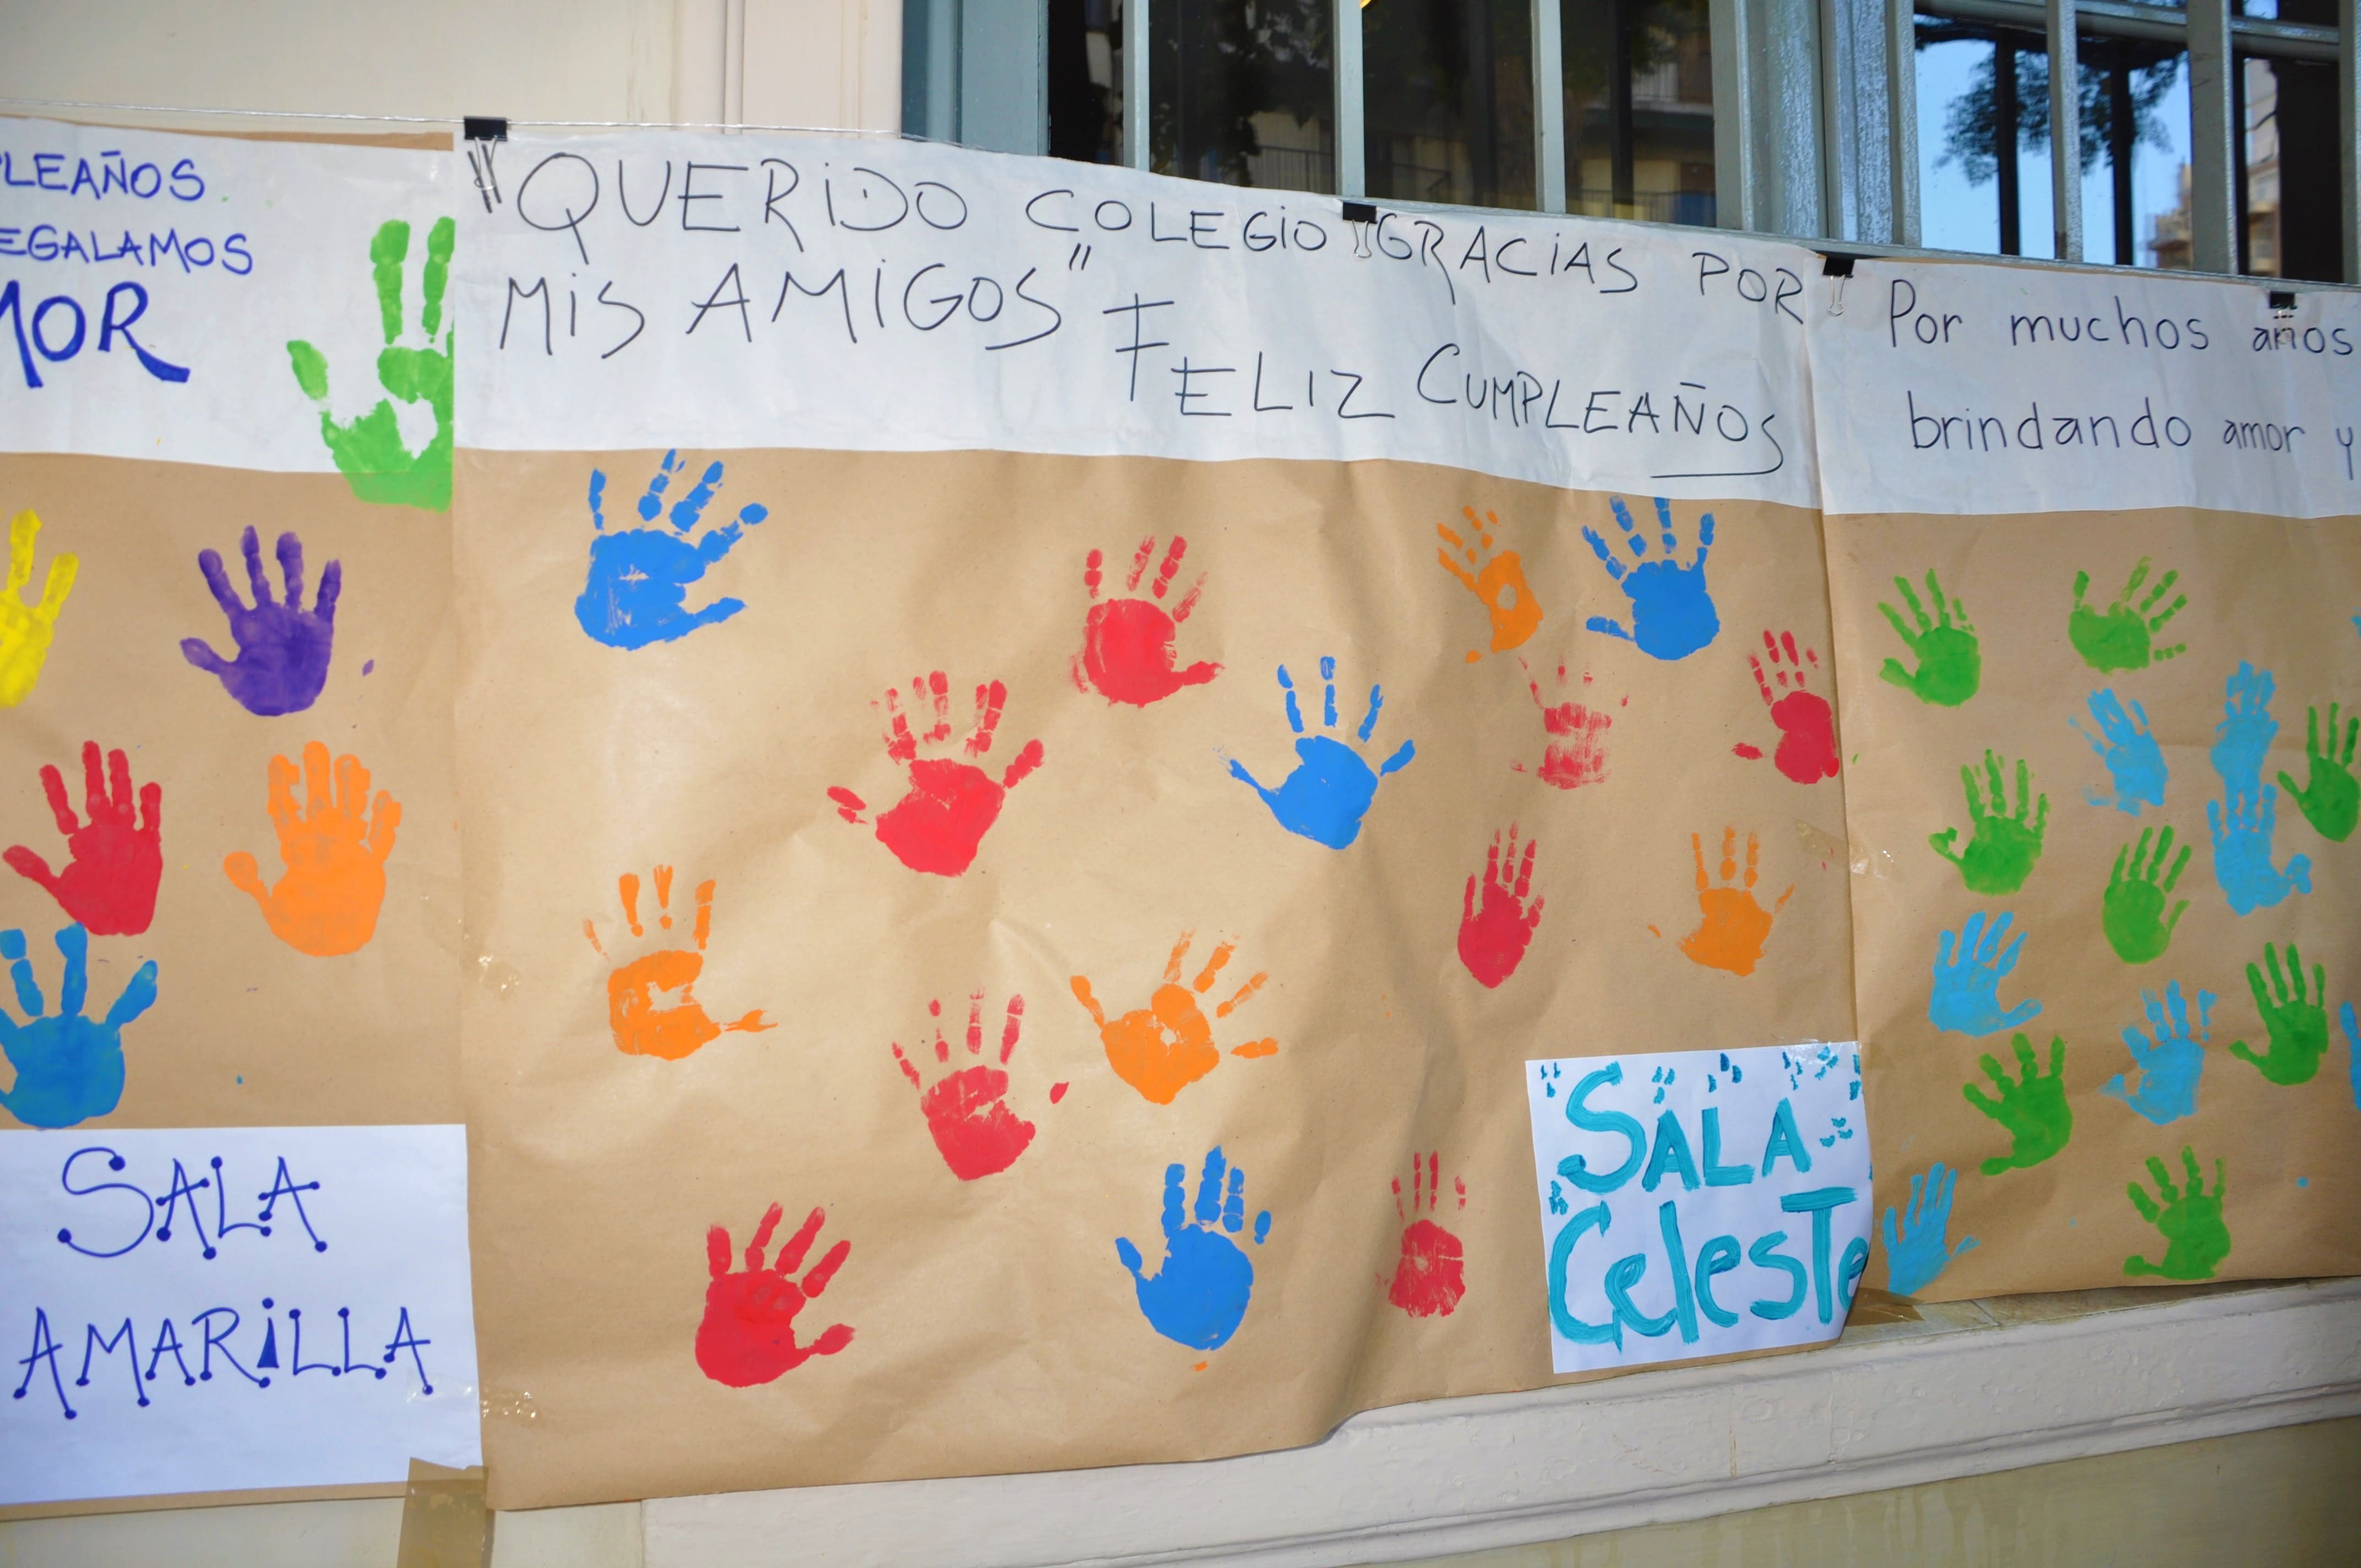 LEAÑOS
EGALAMOS
MOR
SALA
AMARiLLA
"QUERiDO COLEGiO GRACiAS POR
MiS AMiGOS" FELIZ CUMPLEAÑOS
SALA
CelesTe
Por muchos años
brindando amor y